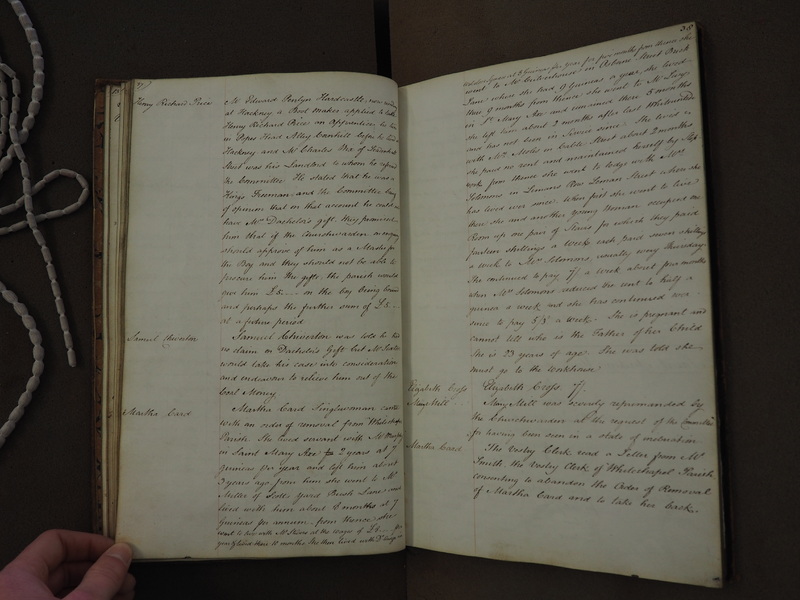 37
Henry Richard Price
Mr Edward Penlyn Hardcastle, now residing
at Hackney a Boot maker applied to take
Henry Richard Price an Apprentice he lived
in Popes Head Alley Cornhill before he lived at
Hackney and Mr Charles
Street was his Landlord to whom he referred
the Committee. He stated that he was a
Kings Freeman and the Committee being
of opinion that on that account he could not
have Mrs Dachelor's gift, they promised
him that if the Churchwarden on enquiry
should approve of him as a Master for
the Boy and they should not be able to
procure him the gift, the parish would
give him £5 on the boy being bound
and perhaps the further sum of £5
at a future period
Samuel Chiverton
Samuel Chiverton was told he had
no claim on Dachelor's Gift but Mr
would take his case into consideration
and endeavour to relieve him out of the
Coal Money
Martha Card
Martha Card Singlewoman came
with an order of removal from Whitechapel
Parish. She lived servant with Mr
in Saint Mary Axe for 2 years at 7
Guineas per year and left him about
3 years ago from him she went to Mr
Miller of Scotts Yard Bush Lane and
lived with him about 8 months at 7
Guineas per annum from thence she
went to live with Mr at the wages of
lived there 10 months She then lived with
38
Guineas per year for months from thence she
went to Mr in Street Bush
Lane where she had 9 Guineas a year, she lived
there 9 months from thence she went to Mr Levy's
in St Mary Axe and remained there 8 months
she left him about 2 months after last Whitsuntide
and has not been in Service since. She lived
with Mrs Moles in Cable Street about 2 months
she paid no rent and maintained herself by
work from thence she went to lodge with Mrs
Solomons in Lemons Row Leman Street where she
has lived ever since. When first she went to live
there she and another young Woman occupied one
Room up one pair of Stairs for which they paid
fourteen shillings a week each paid seven shillings
a week to Mrs Solomons, usually every Thursday.
She continued to pay 7/ a week about four months
when Mrs Solomons reduced the rent to half a
guinea a week and she has continued ever
since to pay 5/3 a week. She is pregnant and
cannot tell who is the Father of her Child
She is 23 years of age. She was told she
must go to the workhouse
Elizabeth Cross
Elizabeth Cross. 7/.
Mary Mill
Mary Mill was severely reprimanded by
the Churchwarden at the request of the Committee
for having been seen in a state of inebriation
Martha Card
The Vestry Clerk read a Letter from Mr
Smith the Vestry Clerk of Whitechapel Parish
consenting to abandon the Order of Removal
of Martha Card and to take her back.